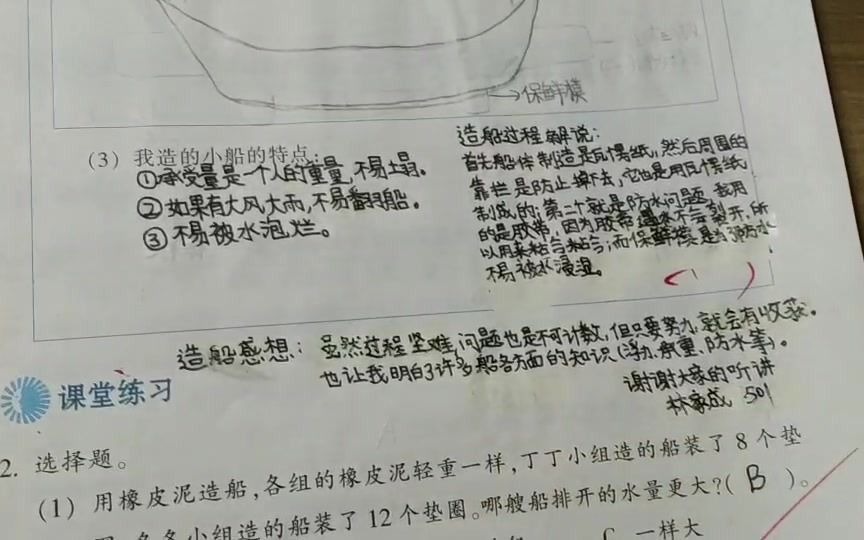 →保鲜模
(3) 我造的小船的特点:
①承受量是一个人的重量,不易塌。
②如果有大风大雨,不易翻船。
③不易被水泡烂。
造船过程解说:
首先船体制造是瓦愣纸,然后周围的
靠拦是防止掉下去,它也是用瓦愣纸
制成的;第二个就是防水问题,我用
的是胶带,因为胶带遇水不会裂开,所
以用来粘合;而保鲜模是为了防水
不易被水浸湿。
造船感想:虽然过程坚难,问题也是不可计数,但只要努力,就会有收获。
也让我明白了许多船各方面的知识(浮力、承重、防水等)。
谢谢大家的听讲
林家成 501
课堂练习
2. 选择题。
(1) 用橡皮泥造船,各组的橡皮泥轻重一样,丁丁小组造的船装了 8 个垫
小组造的船装了 12 个垫圈。哪艘船排开的水量更大?( B )。
一样大